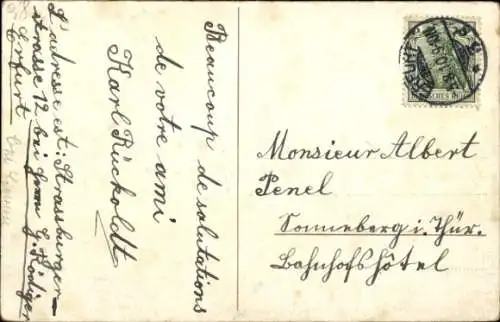 Beaucoup de salutations
de votre ami
Karl Rücholdt
L'adresse est: Strassburger-
strasse 12 bei Herrn G. Rödiger
Erfurt
Monsieur Albert
Penel
Sonneberg i. Thür.
Bahnhofshôtel
ERFURT